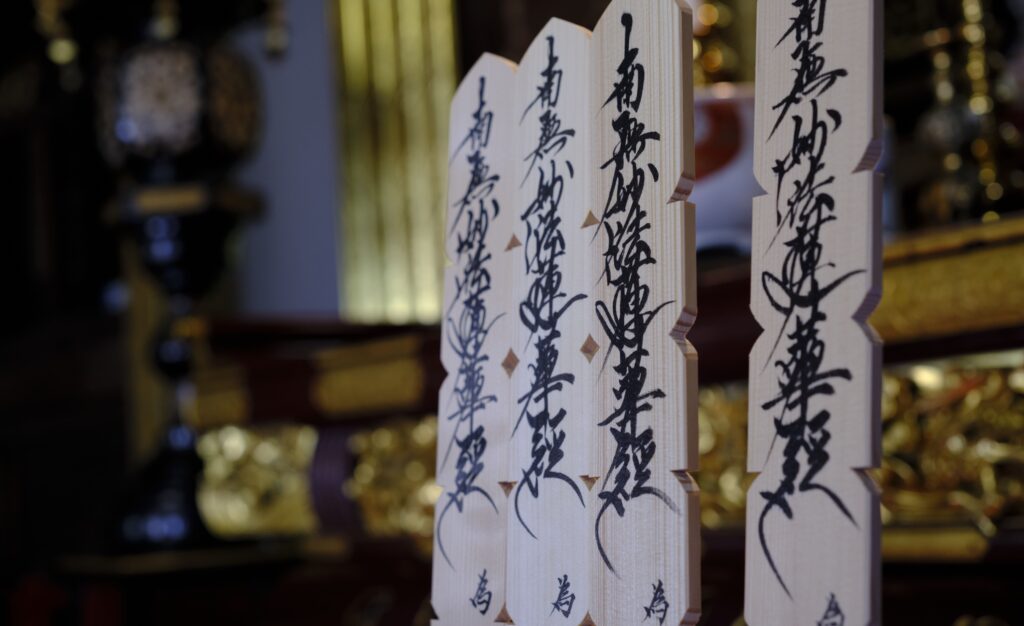 南無妙法蓮華經
為
南無妙法蓮華經
為
南無妙法蓮華經
為
南無妙法蓮華經
為